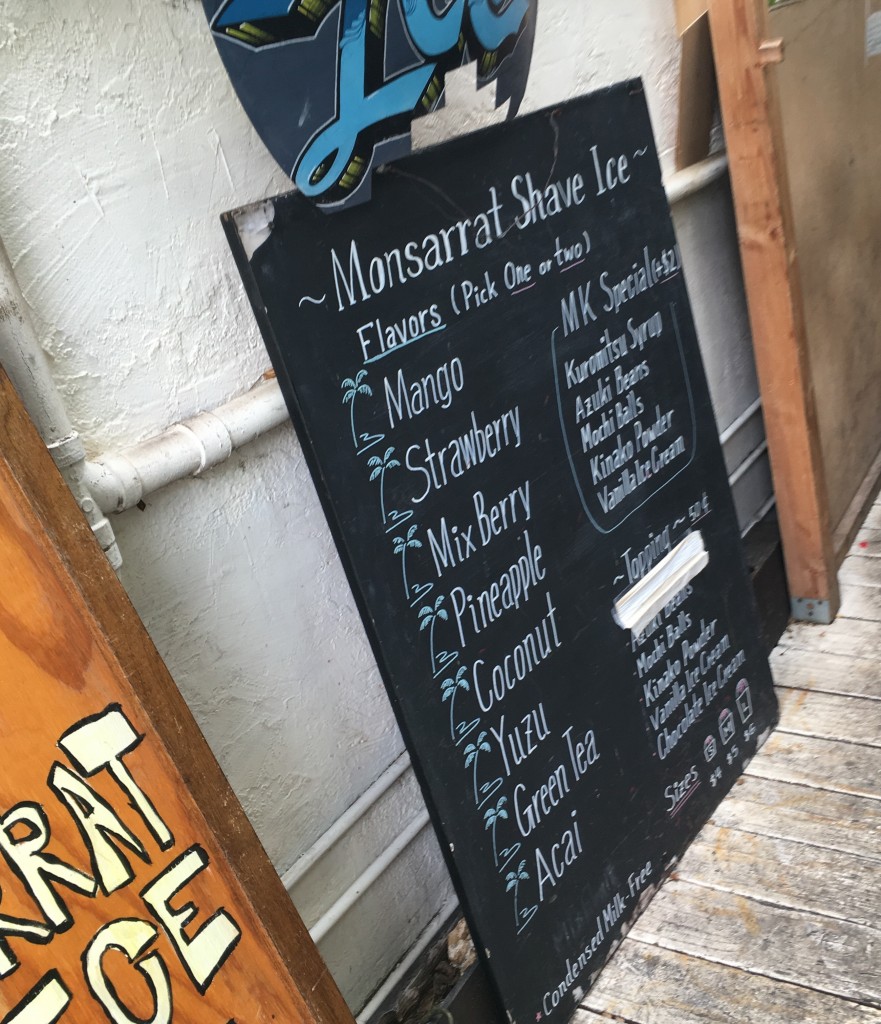 Ice
~ Monsarrat Shave Ice ~
Flavors (Pick One or two)
Mango
Strawberry
Mix Berry
Pineapple
Coconut
Yuzu
Green Tea
Acai
* Condensed Milk-Free
MK Special (+$2)
Kuromitsu Syrup
Azuki Beans
Mochi Balls
Kinako Powder
Vanilla Ice Cream
~ Topping ~ 50¢
Azuki Beans
Mochi Balls
Kinako Powder
Vanilla Ice Cream
Chocolate Ice Cream
Sizes S M L
$4 $5 $6
RRAT
ICE